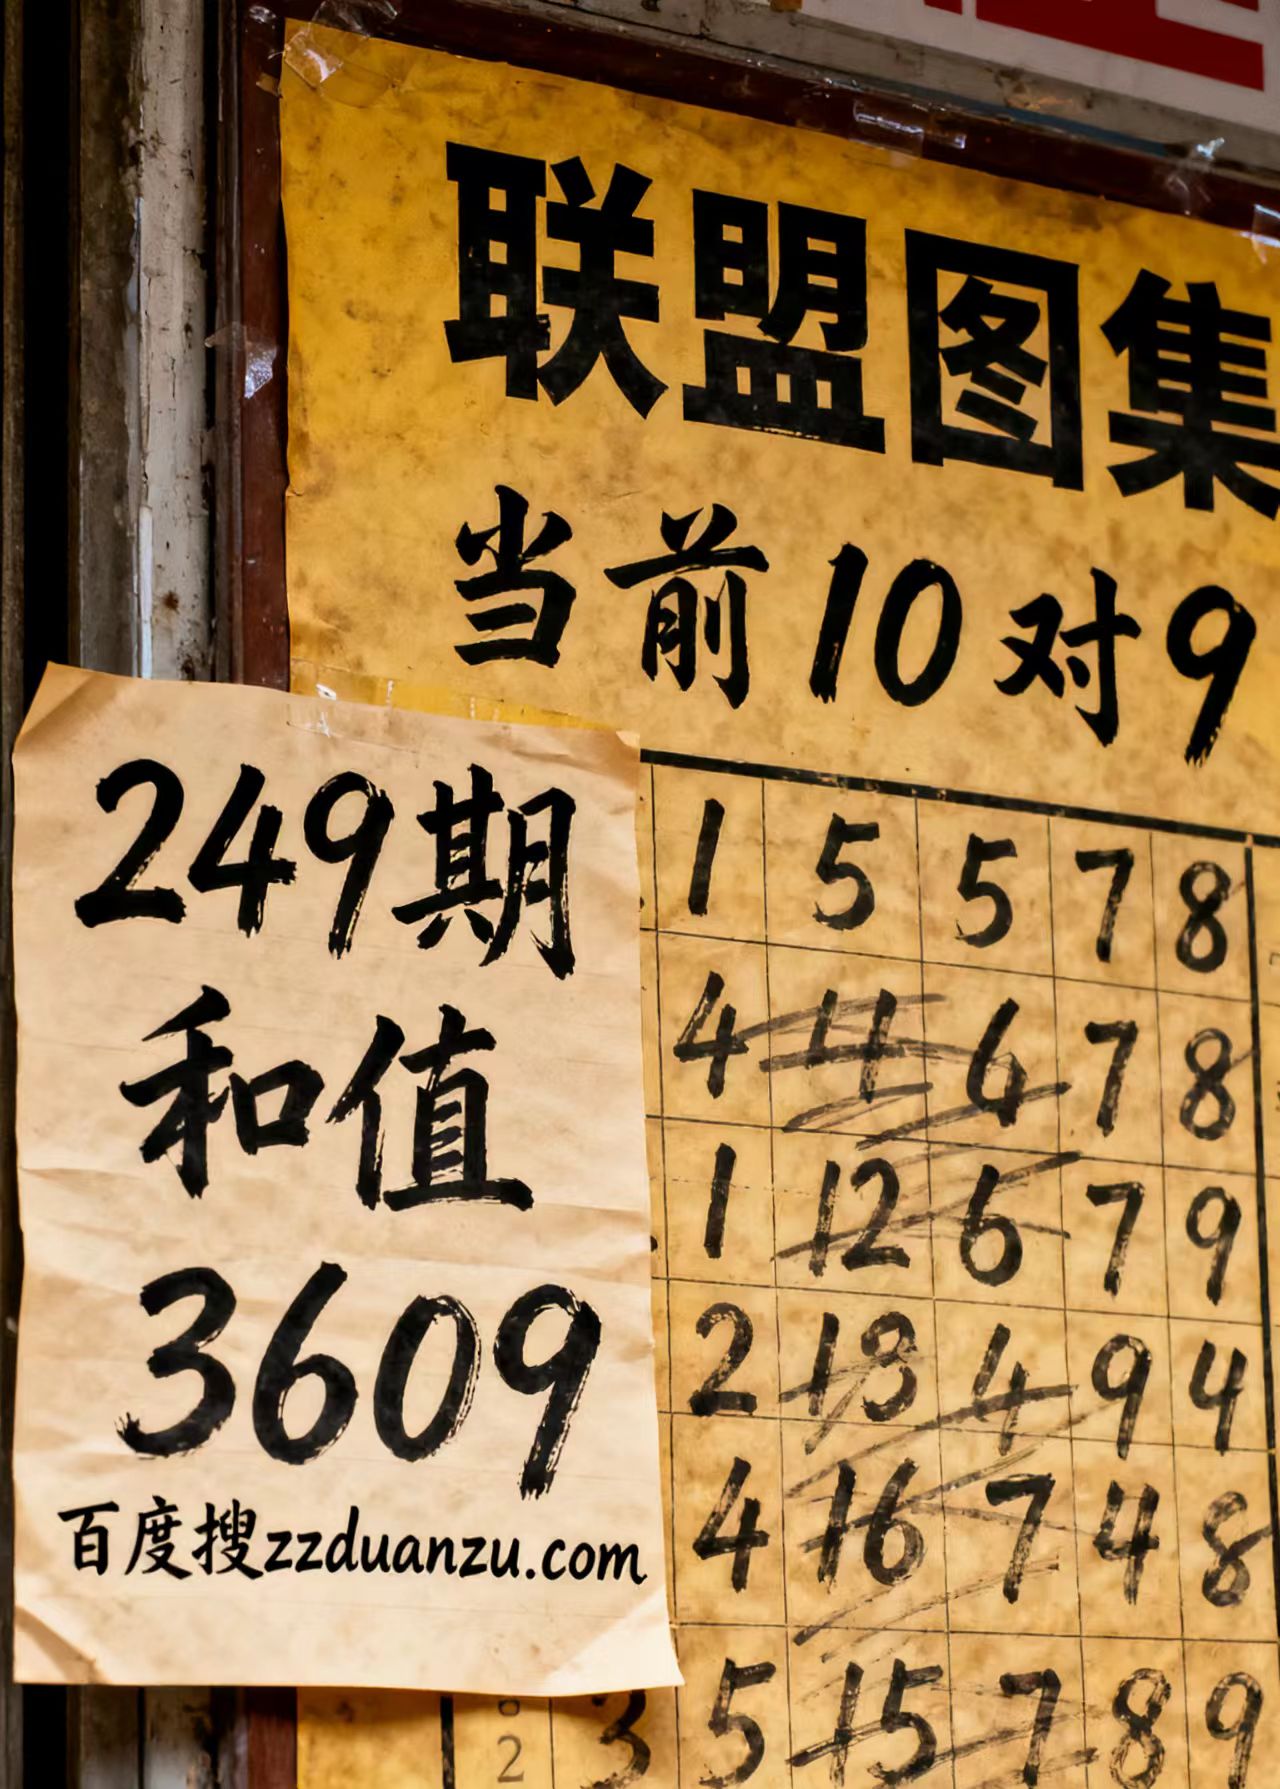 联盟图集
当前10对9
249期
和值
3609
百度搜zzduanzu.com
1 5 5 7 8
4 11 6 7 8
1 12 6 7 9
2 13 4 9 4
4 16 7 4 8
2 3 5 15 7 8 9